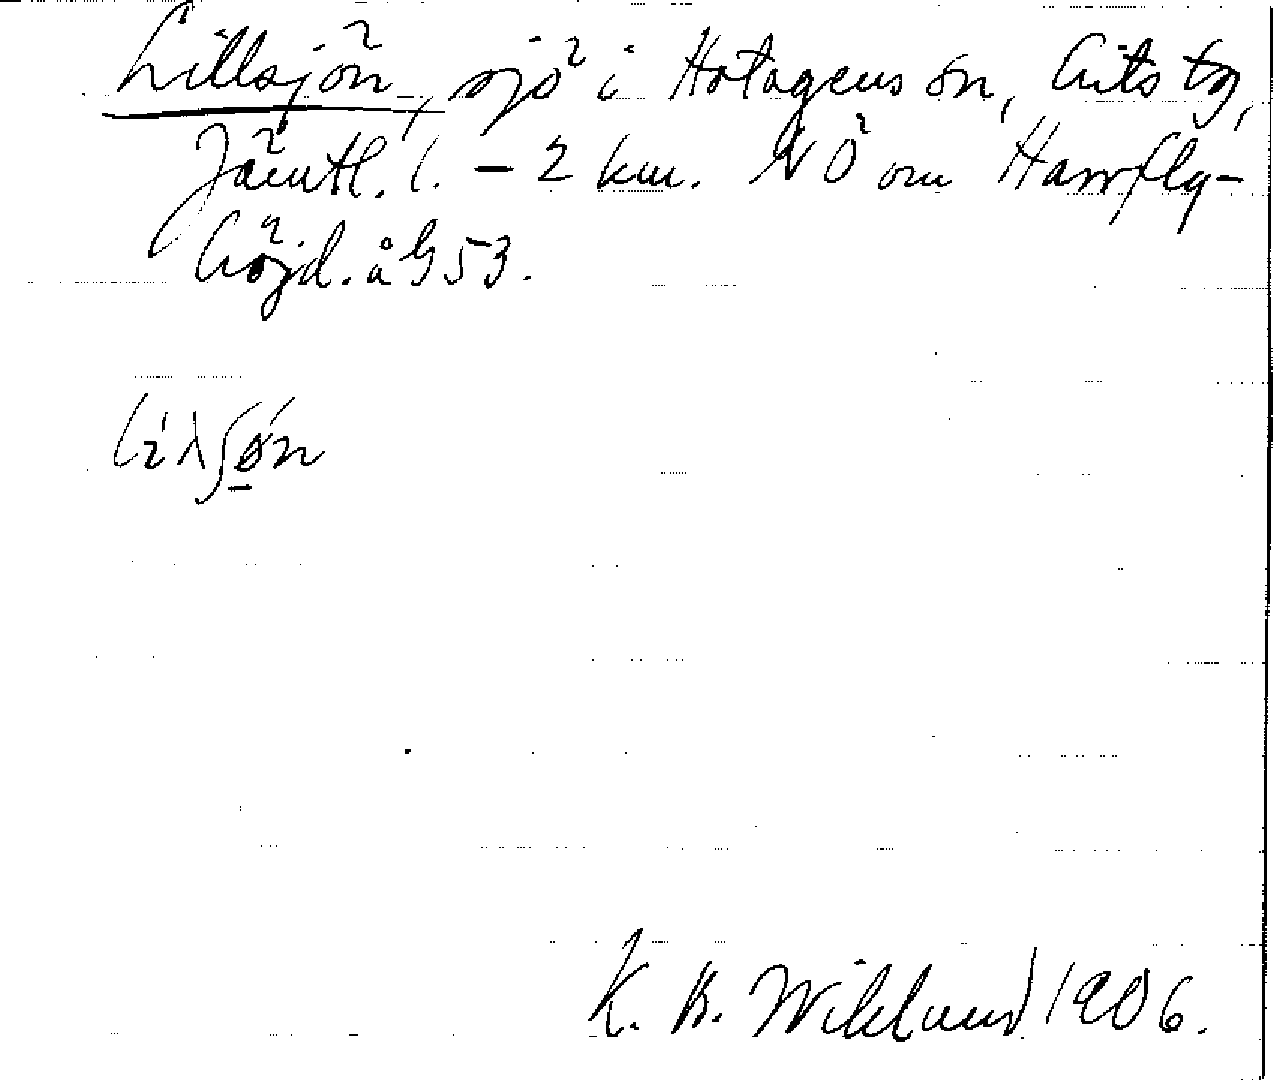 Lillsjön, sjö i Hotagens sn, Lits tg,
Jämtl. l. – 2 km. NÖ om Hanfly-
höjd. å G 53.
K. B. Wiklund 1906.